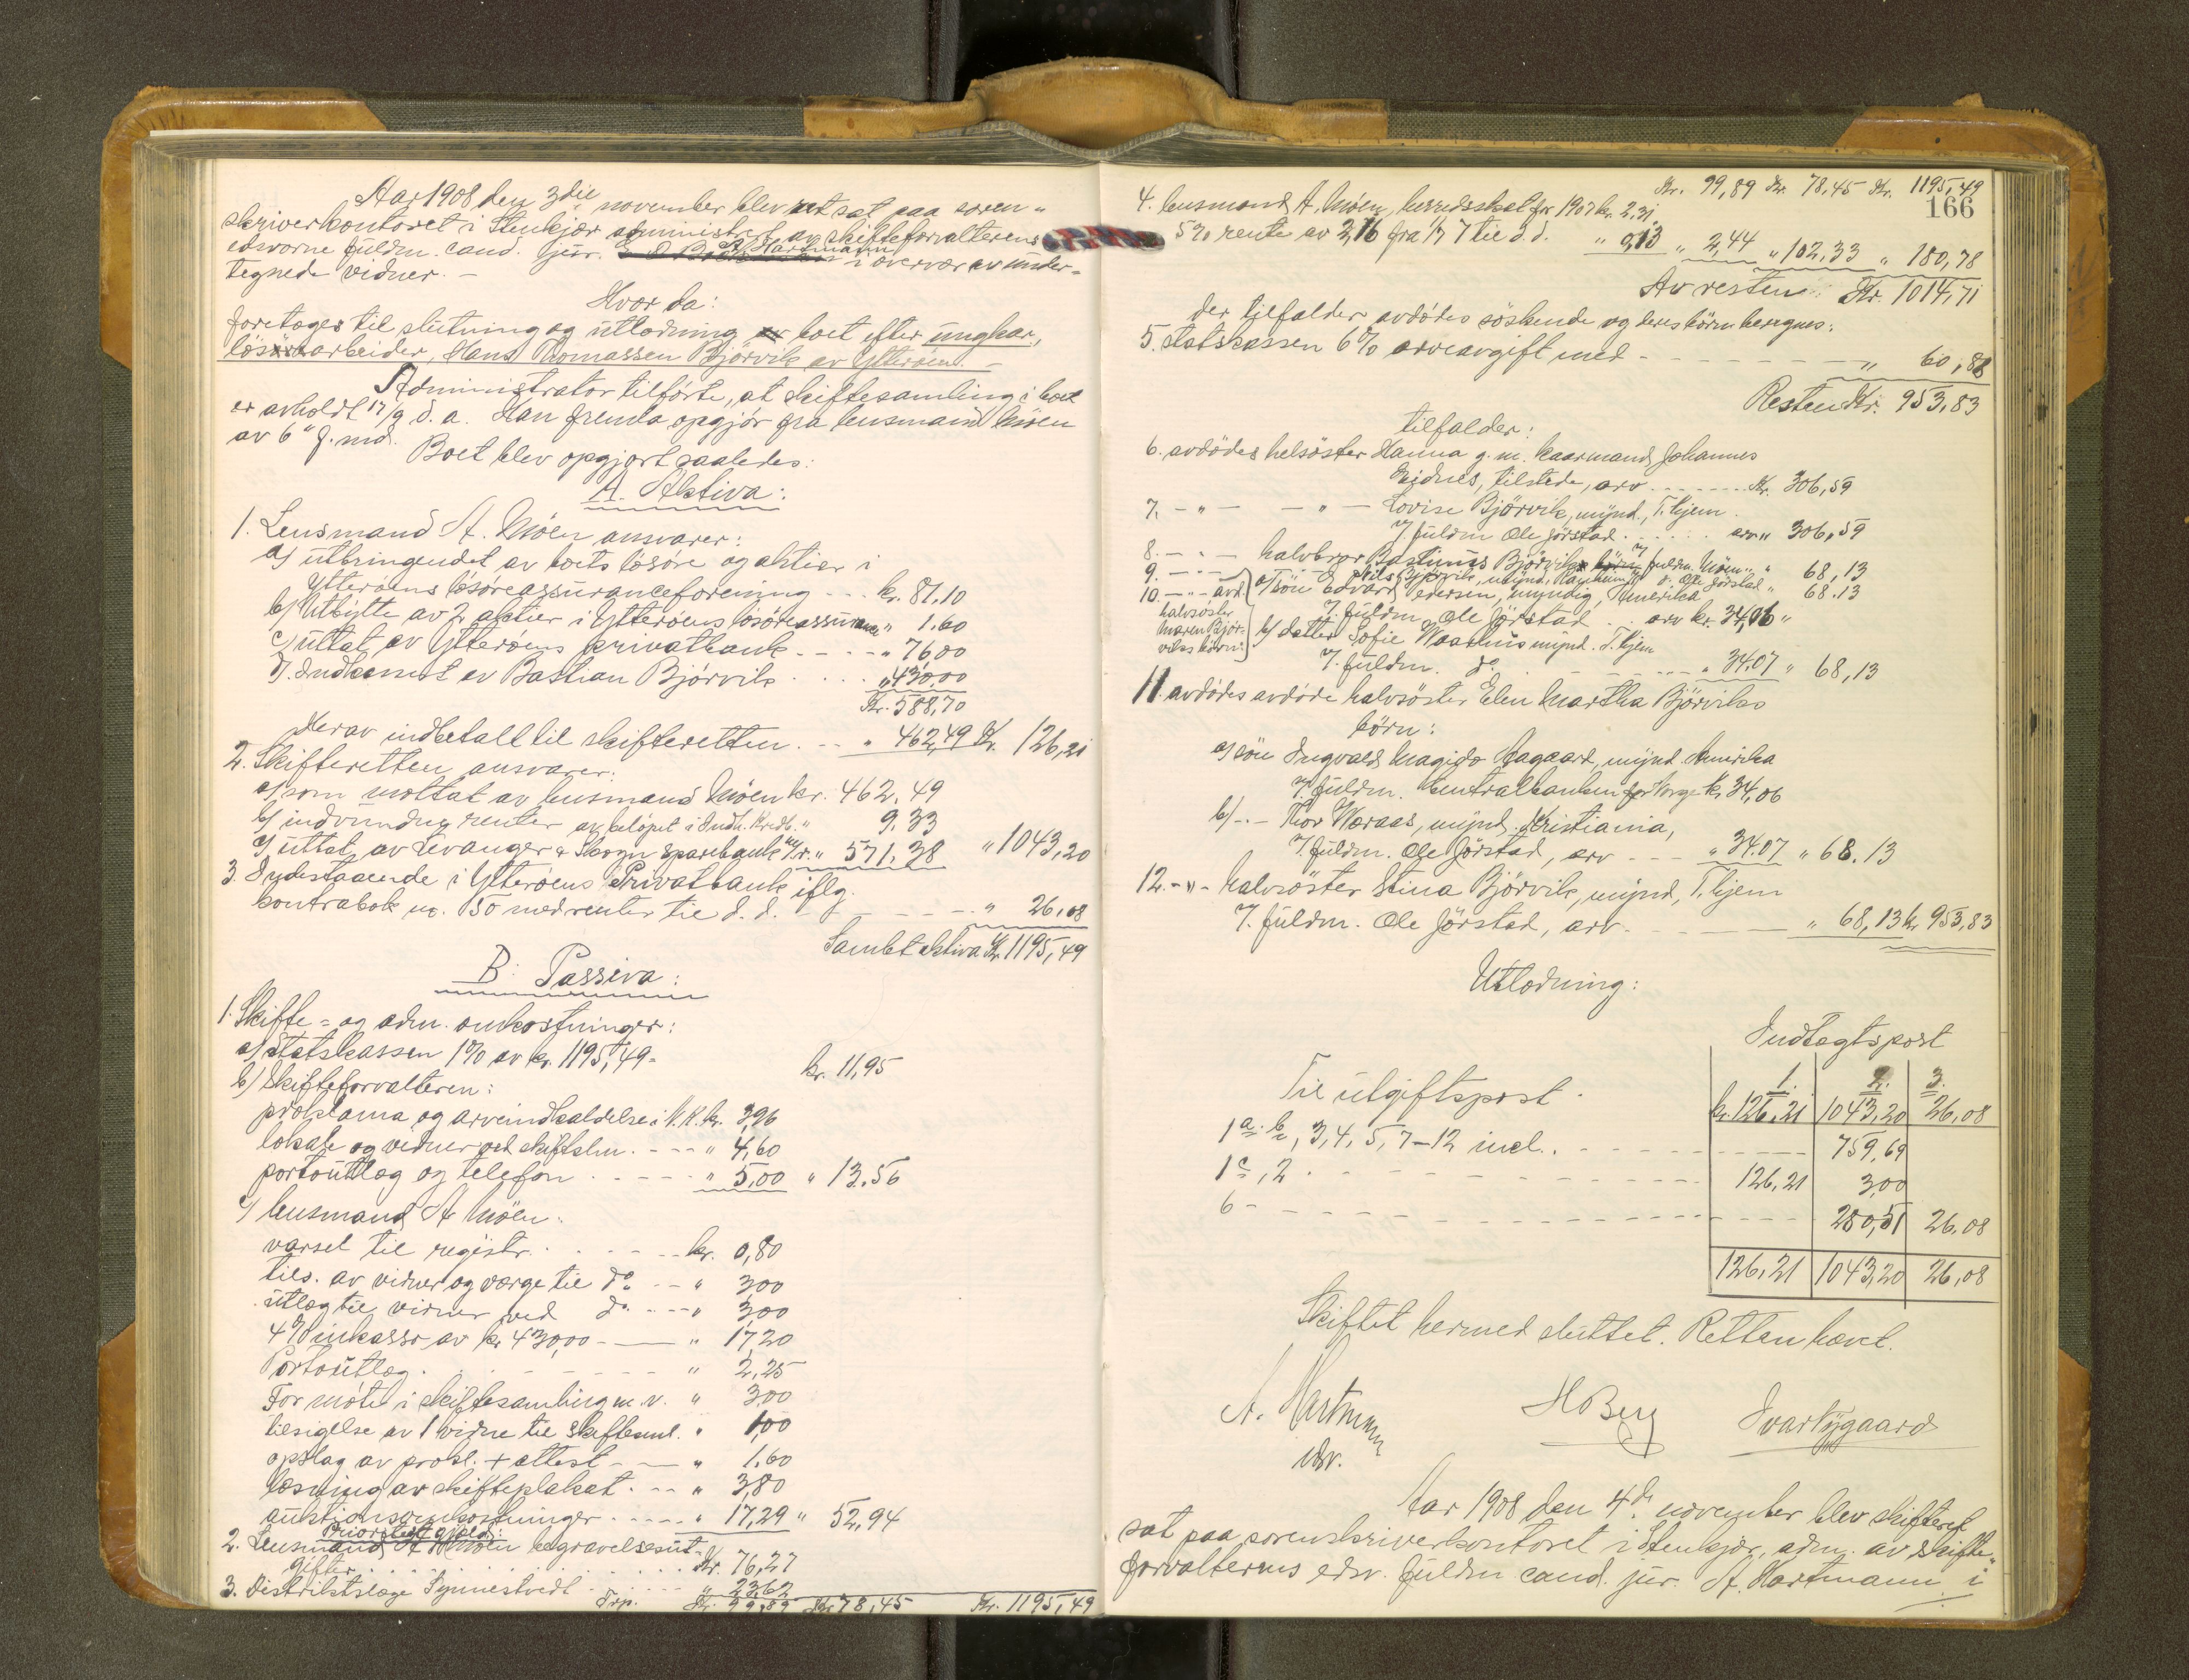 Aar 1908 den 3die november blev ret sat paa soren-
skriverkontoret i Stenkjær administrert av skifteforvalterens
edsvorne fuldm. cand. jur. A. Hartmann i overvær av under-
tegnede vidner. -
Hvor da:
foretoges til slutning og utlodning boet efter ungkar,
løsarbeider, Hans Thomassen Bjørvik av Ytterøen. -
Administrator tilførte, at skiftesamling i boet
er avholdt 17/9 d. a. Han fremla opgjør fra lensmand Møen
av 6" f. md.
Boet blev opgjort saaledes:
A. Aktiva:
1. Lensmand A. Møen ansvarer:
a) utbringendet av boets løsøre og aktier i
Ytterøens løsøreassuranceforening - - - kr. 81,10
b) Utbytte av 2 aktier i Ytterøens løsøreassurance " 1.60
c) uttat av Ytterøens privatbank - - - - " 76 00
d) Indkassert av Bastian Bjørvik . . . . " 430,00
Kr. 588,70
Herav indbetalt til skifteretten. - - " 462,49 Kr. 126,21
2. Skifteretten ansvarer:
a) som mottat av lensmand Møen kr. 462,49
b) indvundne renter av beløpet i Indh. Kredb. " 9.33
c) uttat av Levanger & Skogn sparebank m/r. " 571,38 " 1043,20
3. Indestaaende i Ytterøens Privatbank iflg.
kontrabok no. 150 med renter til d. d. - - - - - " 26,08
Samlet aktiva Kr. 1195,49
B. Passiva:
1. Skifte- og adm. omkostninger:
a) Statskassen 1% av kr. 1195,49- kr. 11,95
b) Skifteforvalteren:
proklama og arveindkaldelse i N.K. kr. 3,96
lokale og vidner ved skiftesln. - - - " 4,60
portoutlæg og telefon . - - - - - " 5,00 " 13.56
c) lensmand A Møen:
varsel til registr. . - - - - - kr. 0,80
tils. av vidner og værge til do - - " 3,00
utlæg til vidner ved do - - - " 3,00
4% inkasso av kr. 430,00 - — " 17,20
Portoutlæg . - - - - - " 2,25
For møte i skiftesamling m. v. " 3,00
tilsigelse av 1 vidne til skiftesml. " 1,00
opslag av prokl. + attest - — " 1.60
læsning av skifteplakat. - - " 3,80
auktionsomkostninger - - - - - " 17,29 " 52,94
Prioritert gjæld:
2. Lensmand A Møen begravelsesut-
gifter . . . . . . . . . . . . Kr. 76,27
3. Distriktslæge Tynnestvedt - . . . . " 23,62
Trp. Kr. 99,89 Kr. 78,45 Kr. 1195,49
Kr. 99,89 Kr. 78,45 Kr. 1195,49
166
4. lensmand A. Møen herredsskat for 1907 kr. 2,31
5% rente av 2,16 fra 1/7 7 til d. d. " 0,13 " 2,44 " 102,33 " 180,78
Av resten: Kr. 1014,71
der tilfalder avdødes søskende og deres børn beregnes:
5. Statskassen 6% arveavgift med - - - - - - - - " 60,88
Resten Kr. 953,83
tilfalder:
6. avdødes helsøster Hanna g. m. kaarmand Johannes
Eidnes, tilstede, arv - - - - - - Kr. 306,59
7. - " - - " - Lovise Bjørvik, mynd., T.hjem
V. fuldm. Ole Jørstad . . . . . arv " 306,59
8. - " - halvbror Bastinus Bjørvik V fuldm. Møen. " 68,13
9. - " - Nils Bjørvik, mynd, Ranheim V d. Ole Jørstad " 68.13
10. - " - avd. a/ søn Edvard Pedersen, myndig, Amerika
halvsøster V. fuldm. Ole Jørstad . . arv kr. 34,06 "
Maren Bjør- b/ datter Sofie Waahus mynd. T.hjem
viks børn: V. fuldm. do. - - - - - - " 34.07 " 68,13
11. avdødes avdøde halvsøster Elen Martha Bjørviks
børn:
a) søn Ingvald Magido Hagaard, mynd. Amerika
V. fuldm. Centralbanken for Norge kr. 34,06
b/ - - Thor Woraas, mynd. Kristiania,
V. fuldm. Ole Jørstad, arv - - - " 34.07 " 68.13
12. - " - halvsøster Stina Bjørvik, mynd, T.hjem
V. fuldm. Ole Jørstad, arv - - - - - - " 68,13 kr. 953,83
Utlodning:
Indtægtspost
Til utgiftspost. 1. 2. 3.
kr. 126,21 1043,20 26,08
1 a. b, 3, 4, 5, 7-12 incl. . - - - - - - 759,69
1 c, 2 . - - - - - - - - 126,21 3,00
6 - - - - - - - - - - 280,51 26,08
126,21 1043,20 26,08
Skiftet hermed sluttet. Retten hævet.
A. Hartmann HBerg Ivar Nygaard
edsv.
Aar 1908 den 4de november blev skifteret
sat paa sorenskriverkontoret i Stenkjær, adm. av skifte-
forvalterens edsv. fuldm cand. jur. A. Hartmann i